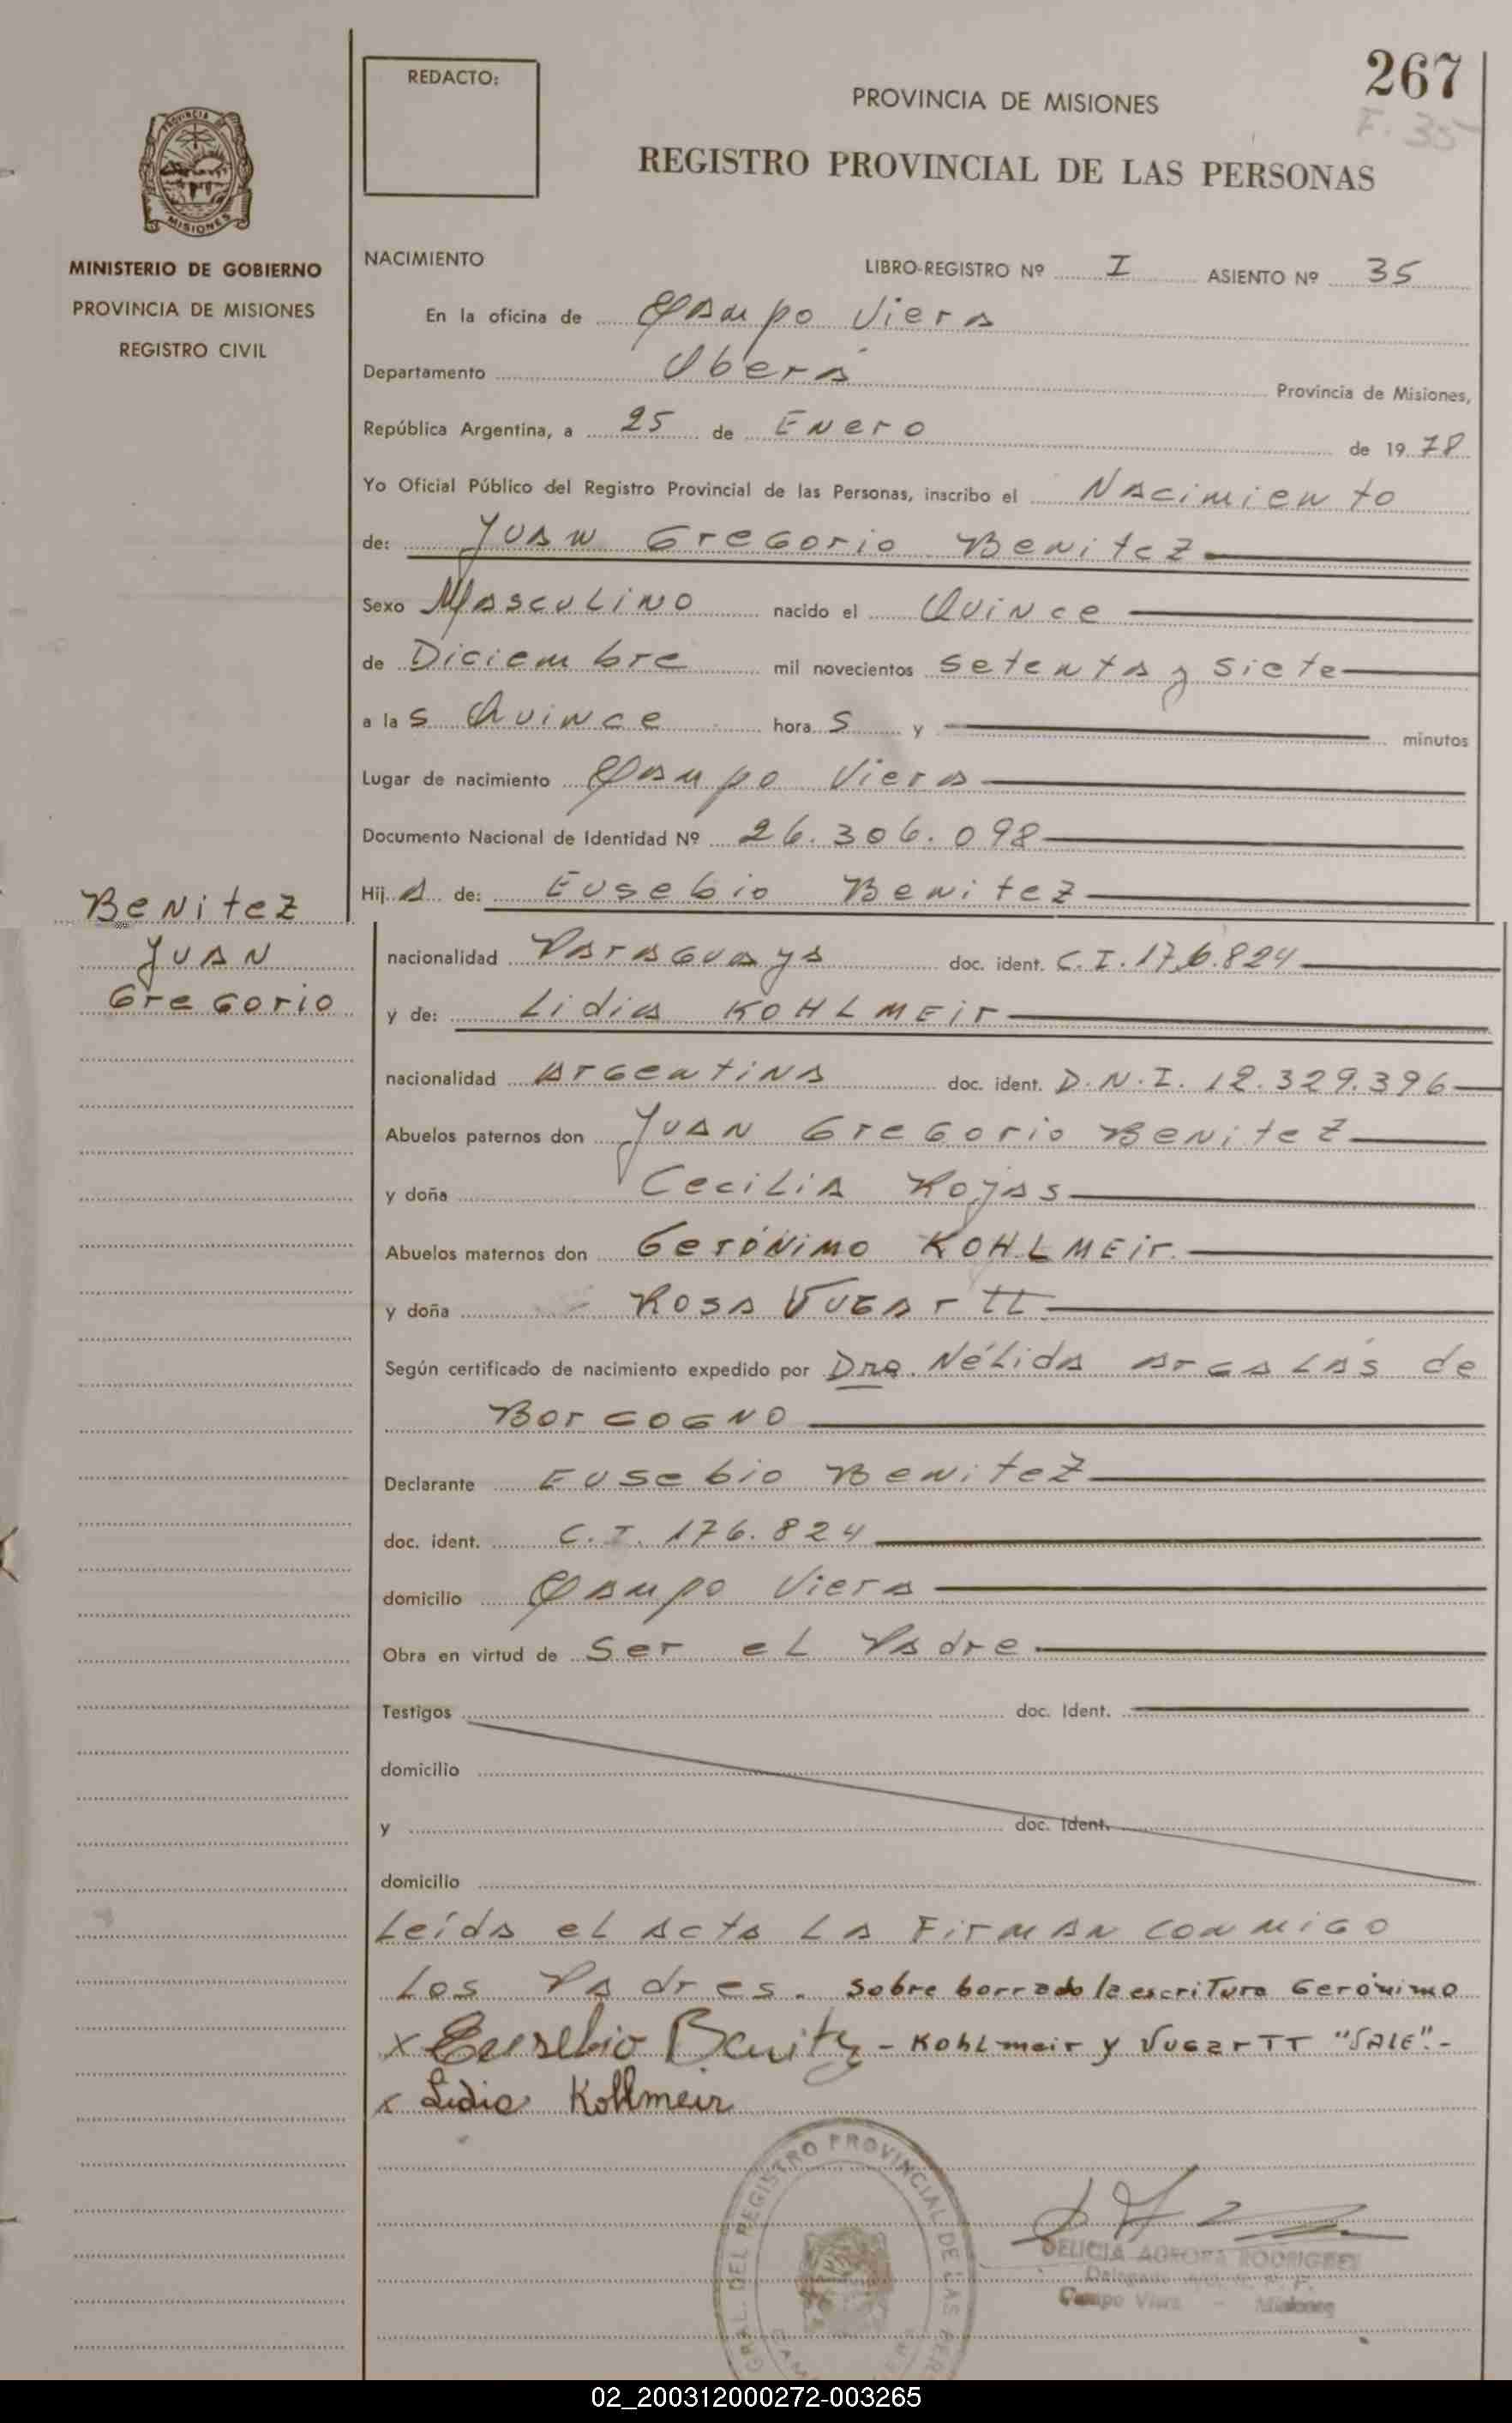 267
F. 35
REDACTO:
PROVINCIA DE MISIONES
REGISTRO PROVINCIAL DE LAS PERSONAS
PROVINCIA DE
MISIONES
MINISTERIO DE GOBIERNO
PROVINCIA DE MISIONES
REGISTRO CIVIL
NACIMIENTO LIBRO-REGISTRO Nº I ASIENTO Nº 35
En la oficina de Campo Viera
Departamento Oberá Provincia de Misiones,
República Argentina, a 25 de Enero de 1978
Yo Oficial Público del Registro Provincial de las Personas, inscribo el Nacimiento
de: Juan Gregorio Benitez
Sexo Masculino nacido el Quince
de Diciembre mil novecientos setenta y siete
a las Quince horas y minutos
Lugar de nacimiento Campo Viera
Documento Nacional de Identidad Nº 26.306.098
Hijo de: Eusebio Benitez
Benitez
Juan
Gregorio
nacionalidad Paraguaya doc. ident. C.I. 176.824
y de: Lidia KOHLMEir
nacionalidad Argentina doc. ident. D.N.I. 12.329.396
Abuelos paternos don Juan Gregorio Benitez
y doña Cecilia Rojas
Abuelos maternos don Gerónimo KOHLMEir
y doña Rosa Vugartt
Según certificado de nacimiento expedido por Dra. Nélida Argalás de
Borgogno
Declarante Eusebio Benitez
doc. ident. C.I. 176.824
domicilio Campo Viera
Obra en virtud de Ser el Padre
Testigos doc. Ident.
domicilio
y doc. Ident.
domicilio
Leída el Acta La Firman conmigo
Los Padres. Sobre borrado la escritura Gerónimo
x Eusebio Benitez - Kohlmeir y Vugartt "SALE".-
x Lidia Kollmeir
GRAL. DEL REGISTRO PROVINCIAL DE LAS PER
DELICIA AURORA RODRIGUEZ
Campo Viera - Misiones
02_200312000272-003265